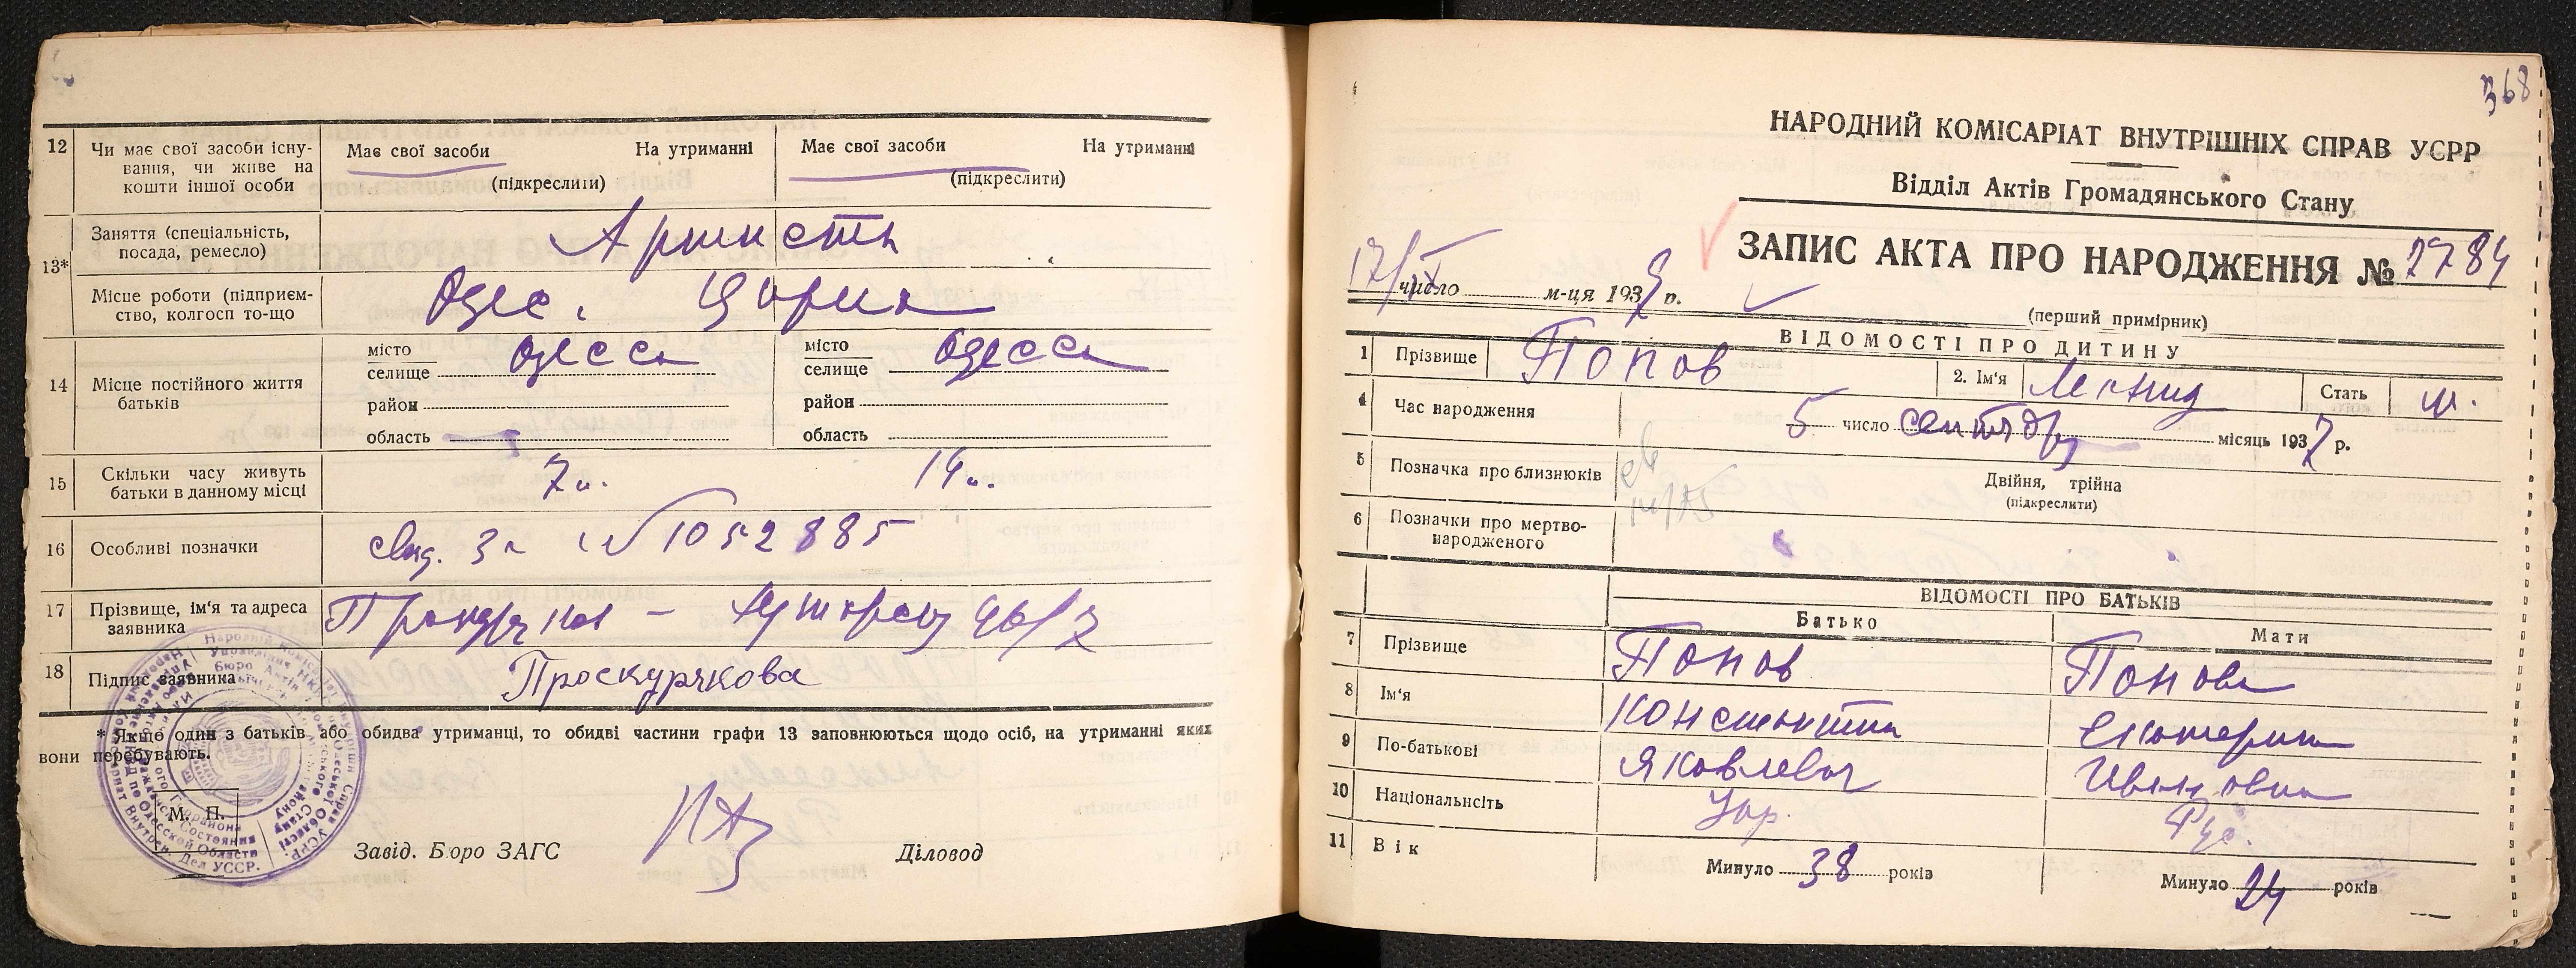 12
Чи має свої засоби існу-
вання, чи живе на
кошти іншої особи
Має свої засоби На утриманні
(підкреслити)
Має свої засоби На утриманні
(підкреслити)
13*
Заняття (спеціальність,
посада, ремесло)
Артисты
Місце роботи (підприєм-
ство, колгосп то-що
Одес. Цирка
14
Місце постійного життя
батьків
місто
селище Одесса
район
область
місто
селище Одесса
район
область
15
Скільки часу живуть
батьки в данному місці
7 л. 14 л.
16 Особливі позначки
свид. За № 1052885
17
Прізвище, ім'я та адреса
заявника
46/7
18 Підпис заявника
Проскурякова
* Якщо один з батьків або обидва утриманці, то обидві частини графи 13 заповнюються щодо осіб, на утриманні яких
вони перебувають.
М. П.
Завід. Бюро ЗАГС Діловод
368
НАРОДНИЙ КОМІСАРІАТ ВНУТРІШНІХ СПРАВ УСРР
Відділ Актів Громадянського Стану
ЗАПИС АКТА ПРО НАРОДЖЕННЯ № 2784
17/IX число м-ця 1937 р.
(перший примірник)
ВІДОМОСТІ ПРО ДИТИНУ
1 Прізвище Попов 2. Ім'я Леонид Стать м.
4 Час народження 5 число сентября місяць 1937 р.
5 Позначка про близнюків Двійня, трійня
(підкреслити)
6 Позначки про мертво-
народженого
ВІДОМОСТІ ПРО БАТЬКІВ
Батько Мати
7 Прізвище Попов Попова
8 Ім'я Константин Екатерина
9 По-батькові Яковлевич Ивановна
10 Національнсіть Укр. Рус.
11 Вік Минуло 38 років Минуло 24 років